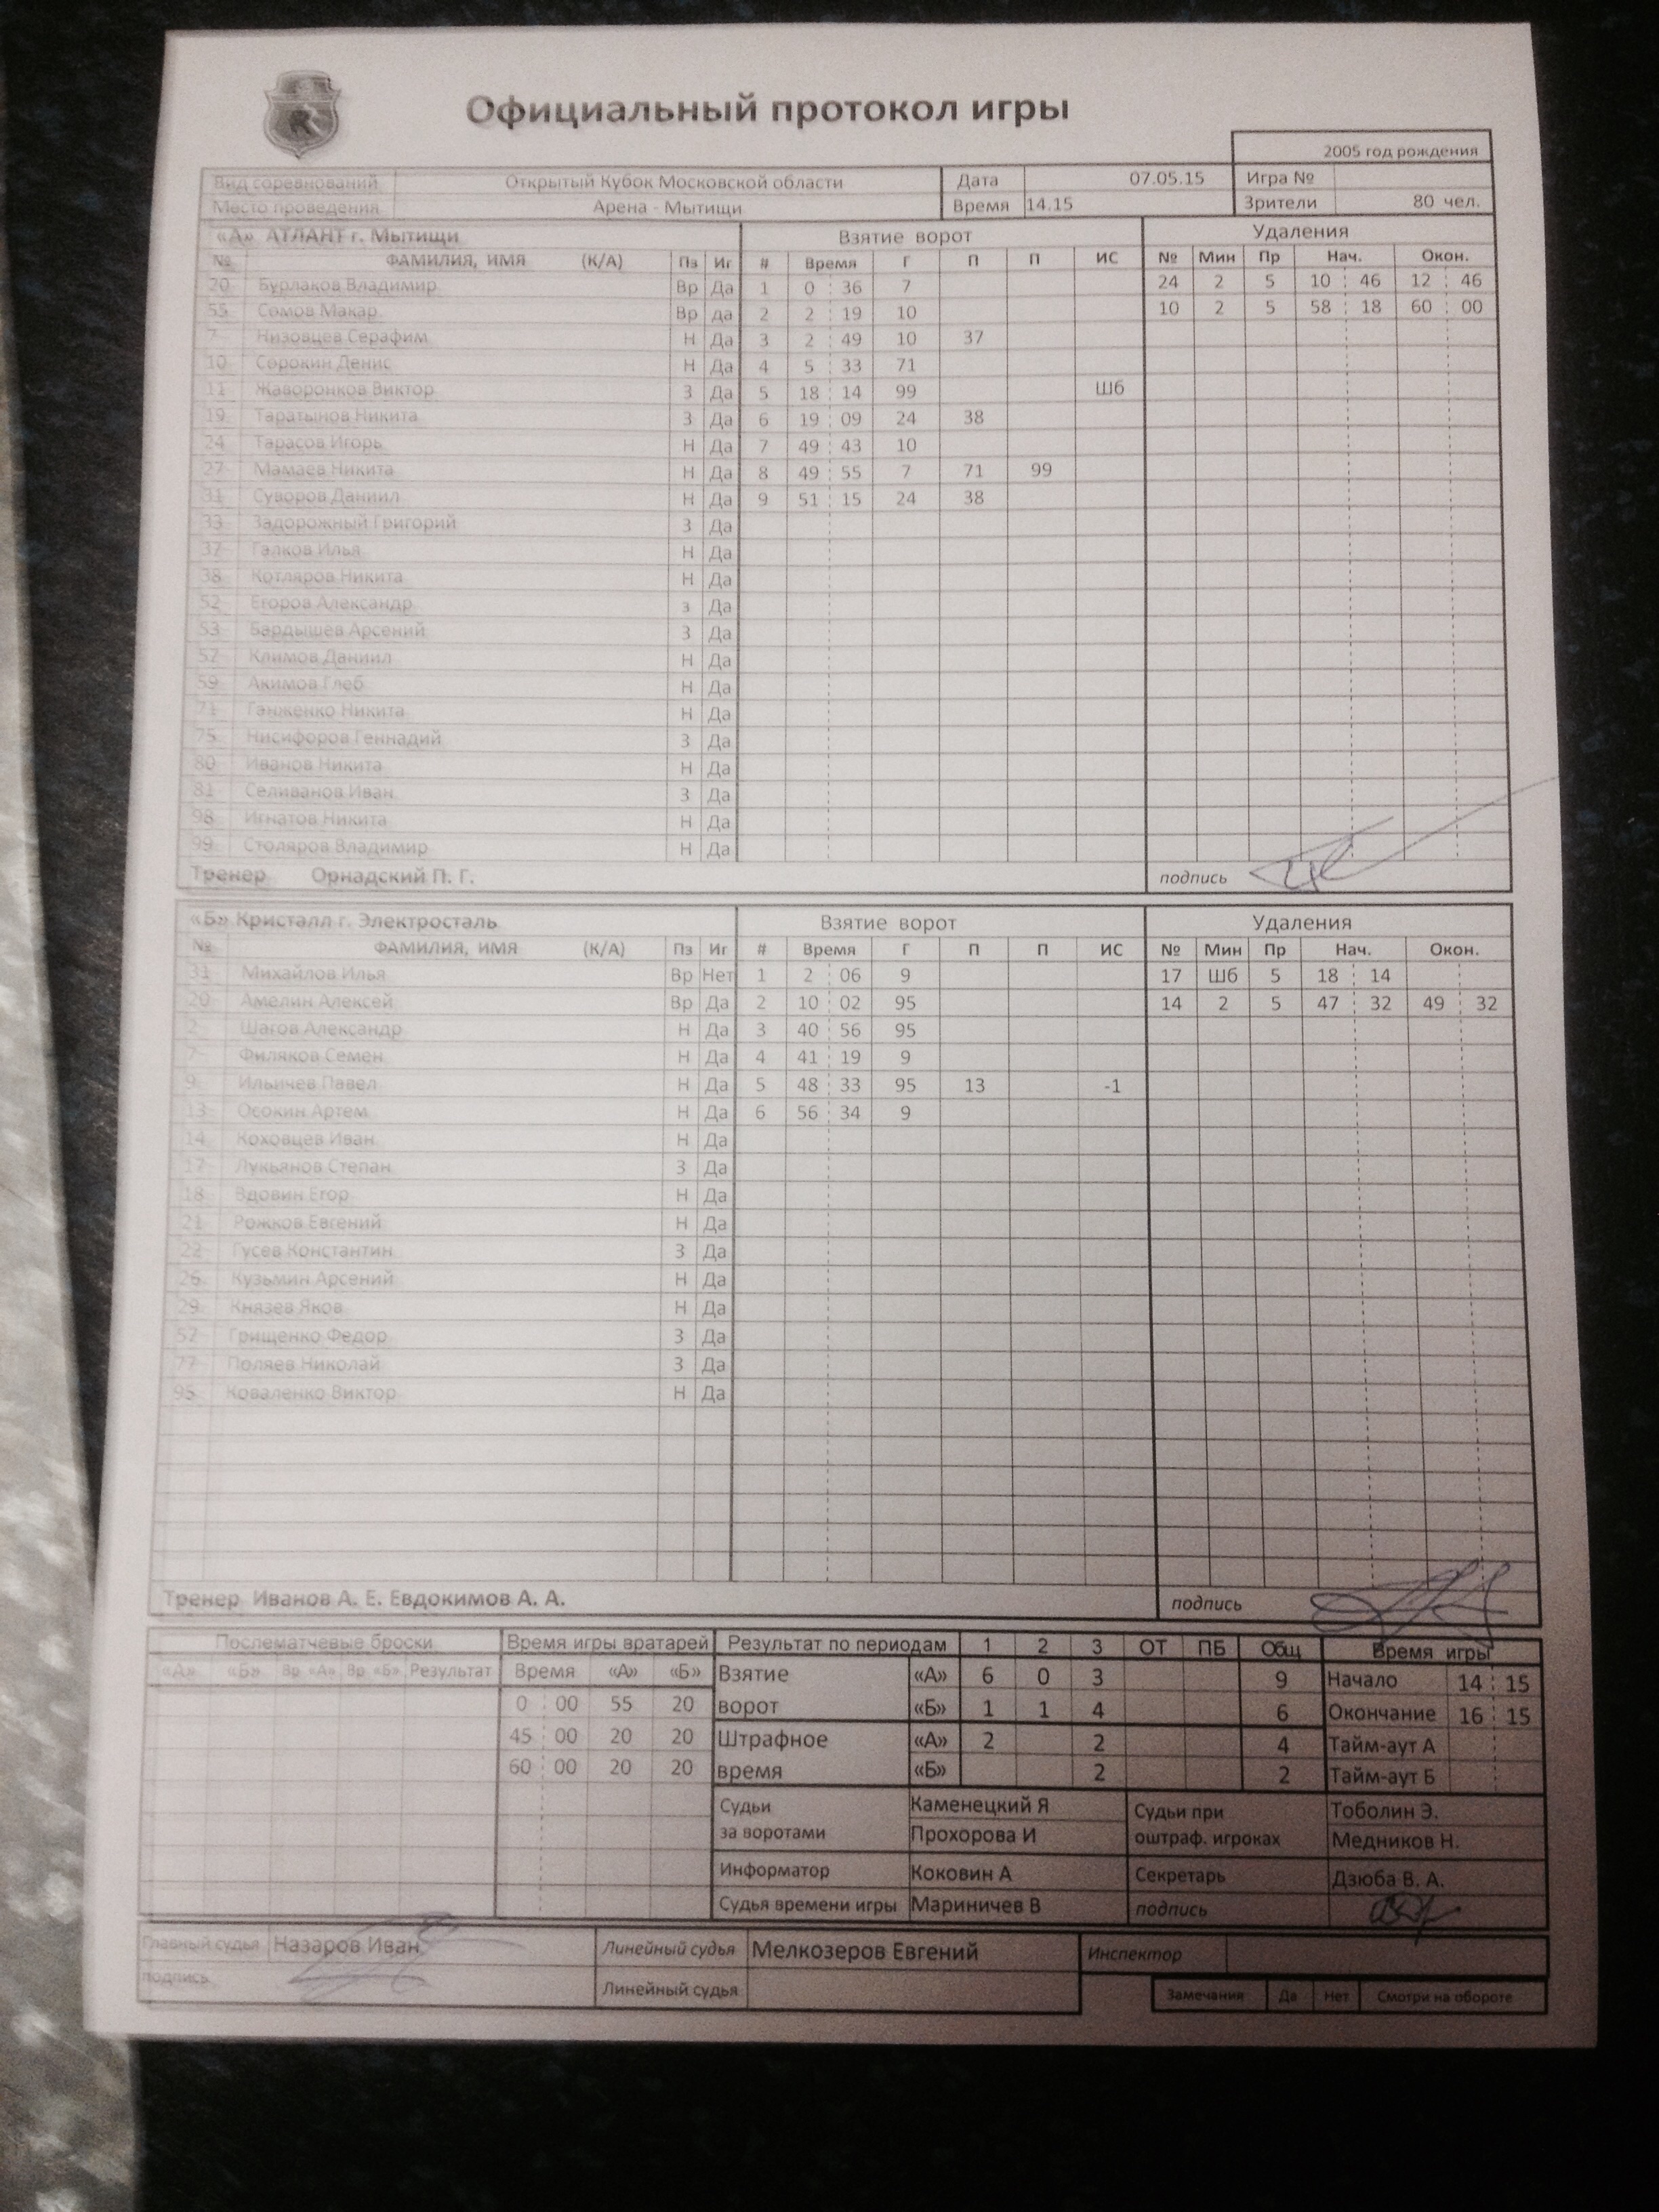 Официальный протокол игры
2005 год рождения
Вид соревнований Открытый Кубок Московской области Дата 07.05.15 Игра №
Место проведения Арена - Мытищи Время 14.15 Зрители 80 чел.
«А» АТЛАНТ г. Мытищи Взятие ворот Удаления
№ ФАМИЛИЯ, ИМЯ (К/А) Пз Иг # Время Г П П ИС № Мин Пр Нач. Окон.
20 Бурлаков Владимир Вр Да 1 0 : 36 7 24 2 5 10 : 46 12 : 46
55 Сомов Макар Вр да 2 2 : 19 10 10 2 5 58 : 18 60 : 00
7 Низовцев Серафим Н Да 3 2 : 49 10 37
10 Сорокин Денис Н Да 4 5 : 33 71
11 Жаворонков Виктор З Да 5 18 : 14 99 Шб
19 Таратынов Никита З Да 6 19 : 09 24 38
24 Тарасов Игорь Н Да 7 49 : 43 10
27 Мамаев Никита Н Да 8 49 : 55 7 71 99
31 Суворов Даниил Н Да 9 51 : 15 24 38
33 Задорожный Григорий З Да
37 Галков Илья Н Да
38 Котляров Никита Н Да
52 Егоров Александр з Да
53 Бардышев Арсений З Да
57 Климов Даниил Н Да
59 Акимов Глеб Н Да
71 Ганженко Никита Н Да
75 Нисифоров Геннадий З Да
80 Иванов Никита Н Да
81 Селиванов Иван З Да
98 Игнатов Никита Н Да
99 Столяров Владимир Н Да
Тренер Орнадский П. Г. подпись
«Б» Кристалл г. Электросталь Взятие ворот Удаления
№ ФАМИЛИЯ, ИМЯ (К/А) Пз Иг # Время Г П П ИС № Мин Пр Нач. Окон.
31 Михайлов Илья Вр Нет 1 2 : 06 9 17 Шб 5 18 : 14
20 Амелин Алексей Вр Да 2 10 : 02 95 14 2 5 47 : 32 49 : 32
2 Шагов Александр Н Да 3 40 : 56 95
7 Филяков Семен Н Да 4 41 : 19 9
9 Ильичев Павел Н Да 5 48 : 33 95 13 -1
13 Осокин Артем Н Да 6 56 : 34 9
14 Коховцев Иван Н Да
17 Лукьянов Степан З Да
18 Вдовин Егор Н Да
21 Рожков Евгений Н Да
22 Гусев Константин З Да
26 Кузьмин Арсений Н Да
29 Князев Яков Н Да
57 Грищенко Федор З Да
77 Поляев Николай З Да
95 Коваленко Виктор Н Да
Тренер Иванов А. Е. Евдокимов А. А. подпись
Послематчевые броски Время игры вратарей Результат по периодам 1 2 3 ОТ ПБ Общ Время игры
«А» «Б» Вр «А» Вр «Б» Результат Время «А» «Б» Взятие «А» 6 0 3 9 Начало 14 : 15
0 : 00 55 20 ворот «Б» 1 1 4 6 Окончание 16 : 15
45 : 00 20 20 Штрафное «А» 2 2 4 Тайм-аут А
60 : 00 20 20 время «Б» 2 2 Тайм-аут Б
Судьи Каменецкий Я Судьи при Тоболин Э.
за воротами Прохорова И оштраф. игроках Медников Н.
Информатор Коковин А Секретарь Дзюба В. А.
Судья времени игры Мариничев В подпись
Главный судья Назаров Иван Линейный судья Мелкозеров Евгений Инспектор
подпись Линейный судья Замечания Да Нет Смотри на обороте